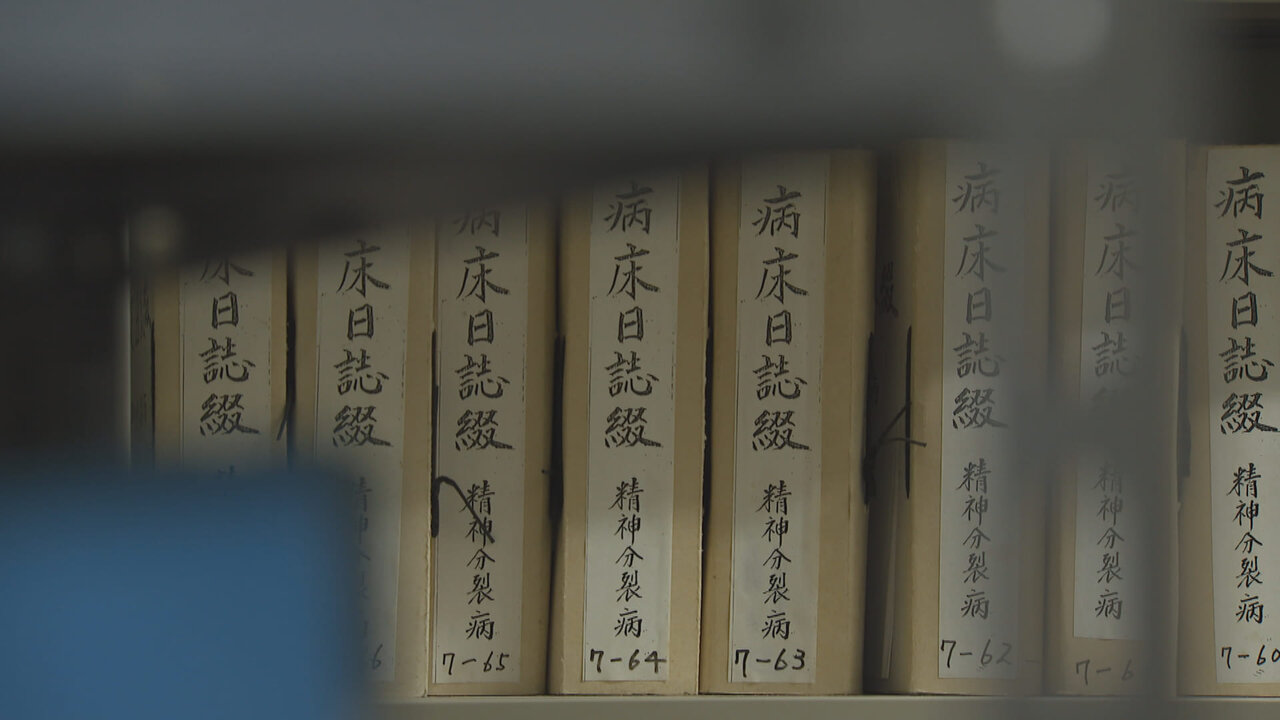 病床日誌綴
精神分裂病
7-60
病床日誌綴
精神分裂病
7-6
病床日誌綴
精神分裂病
7-62
病床日誌綴
精神分裂病
7-63
病床日誌綴
精神分裂病
7-64
病床日誌綴
精神分裂病
7-65
床日誌綴
精神分裂病
6
床日誌綴